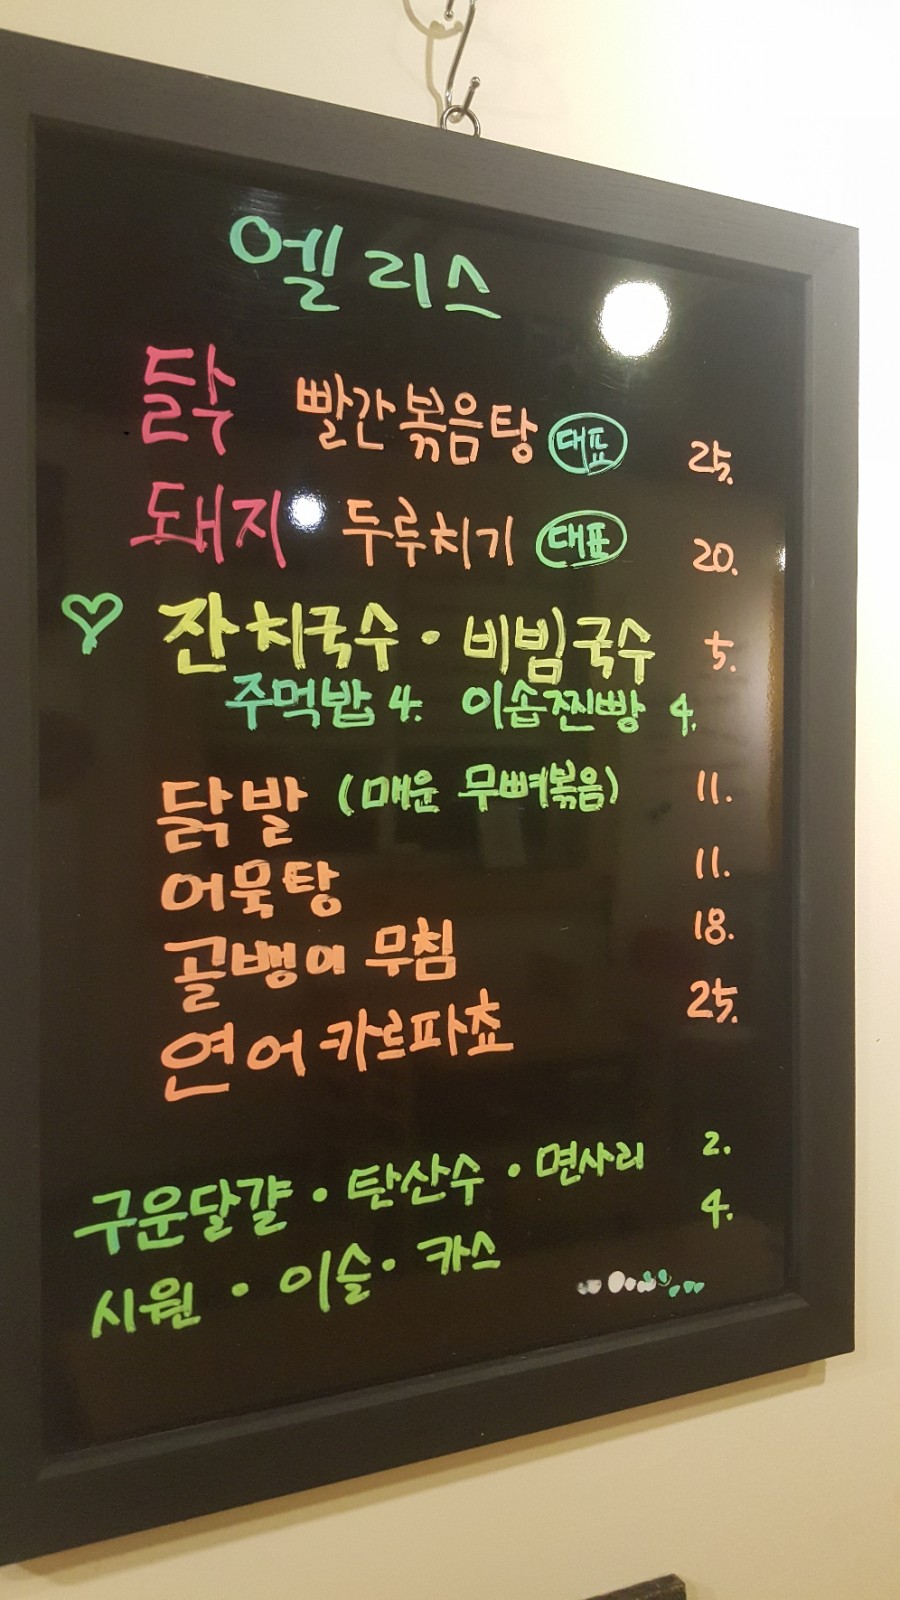 엘리스
닭 빨간볶음탕 대표 25.
돼지 두루치기 대표 20.
잔치국수 · 비빔국수 5.
주먹밥 4. 이솝찐빵 4.
닭발 (매운 무뼈볶음) 11.
어묵탕 11.
골뱅이 무침 18.
연어 카르파쵸 25.
구운달걀 · 탄산수 · 면사리 2.
시원 · 이슬 · 카스 4.